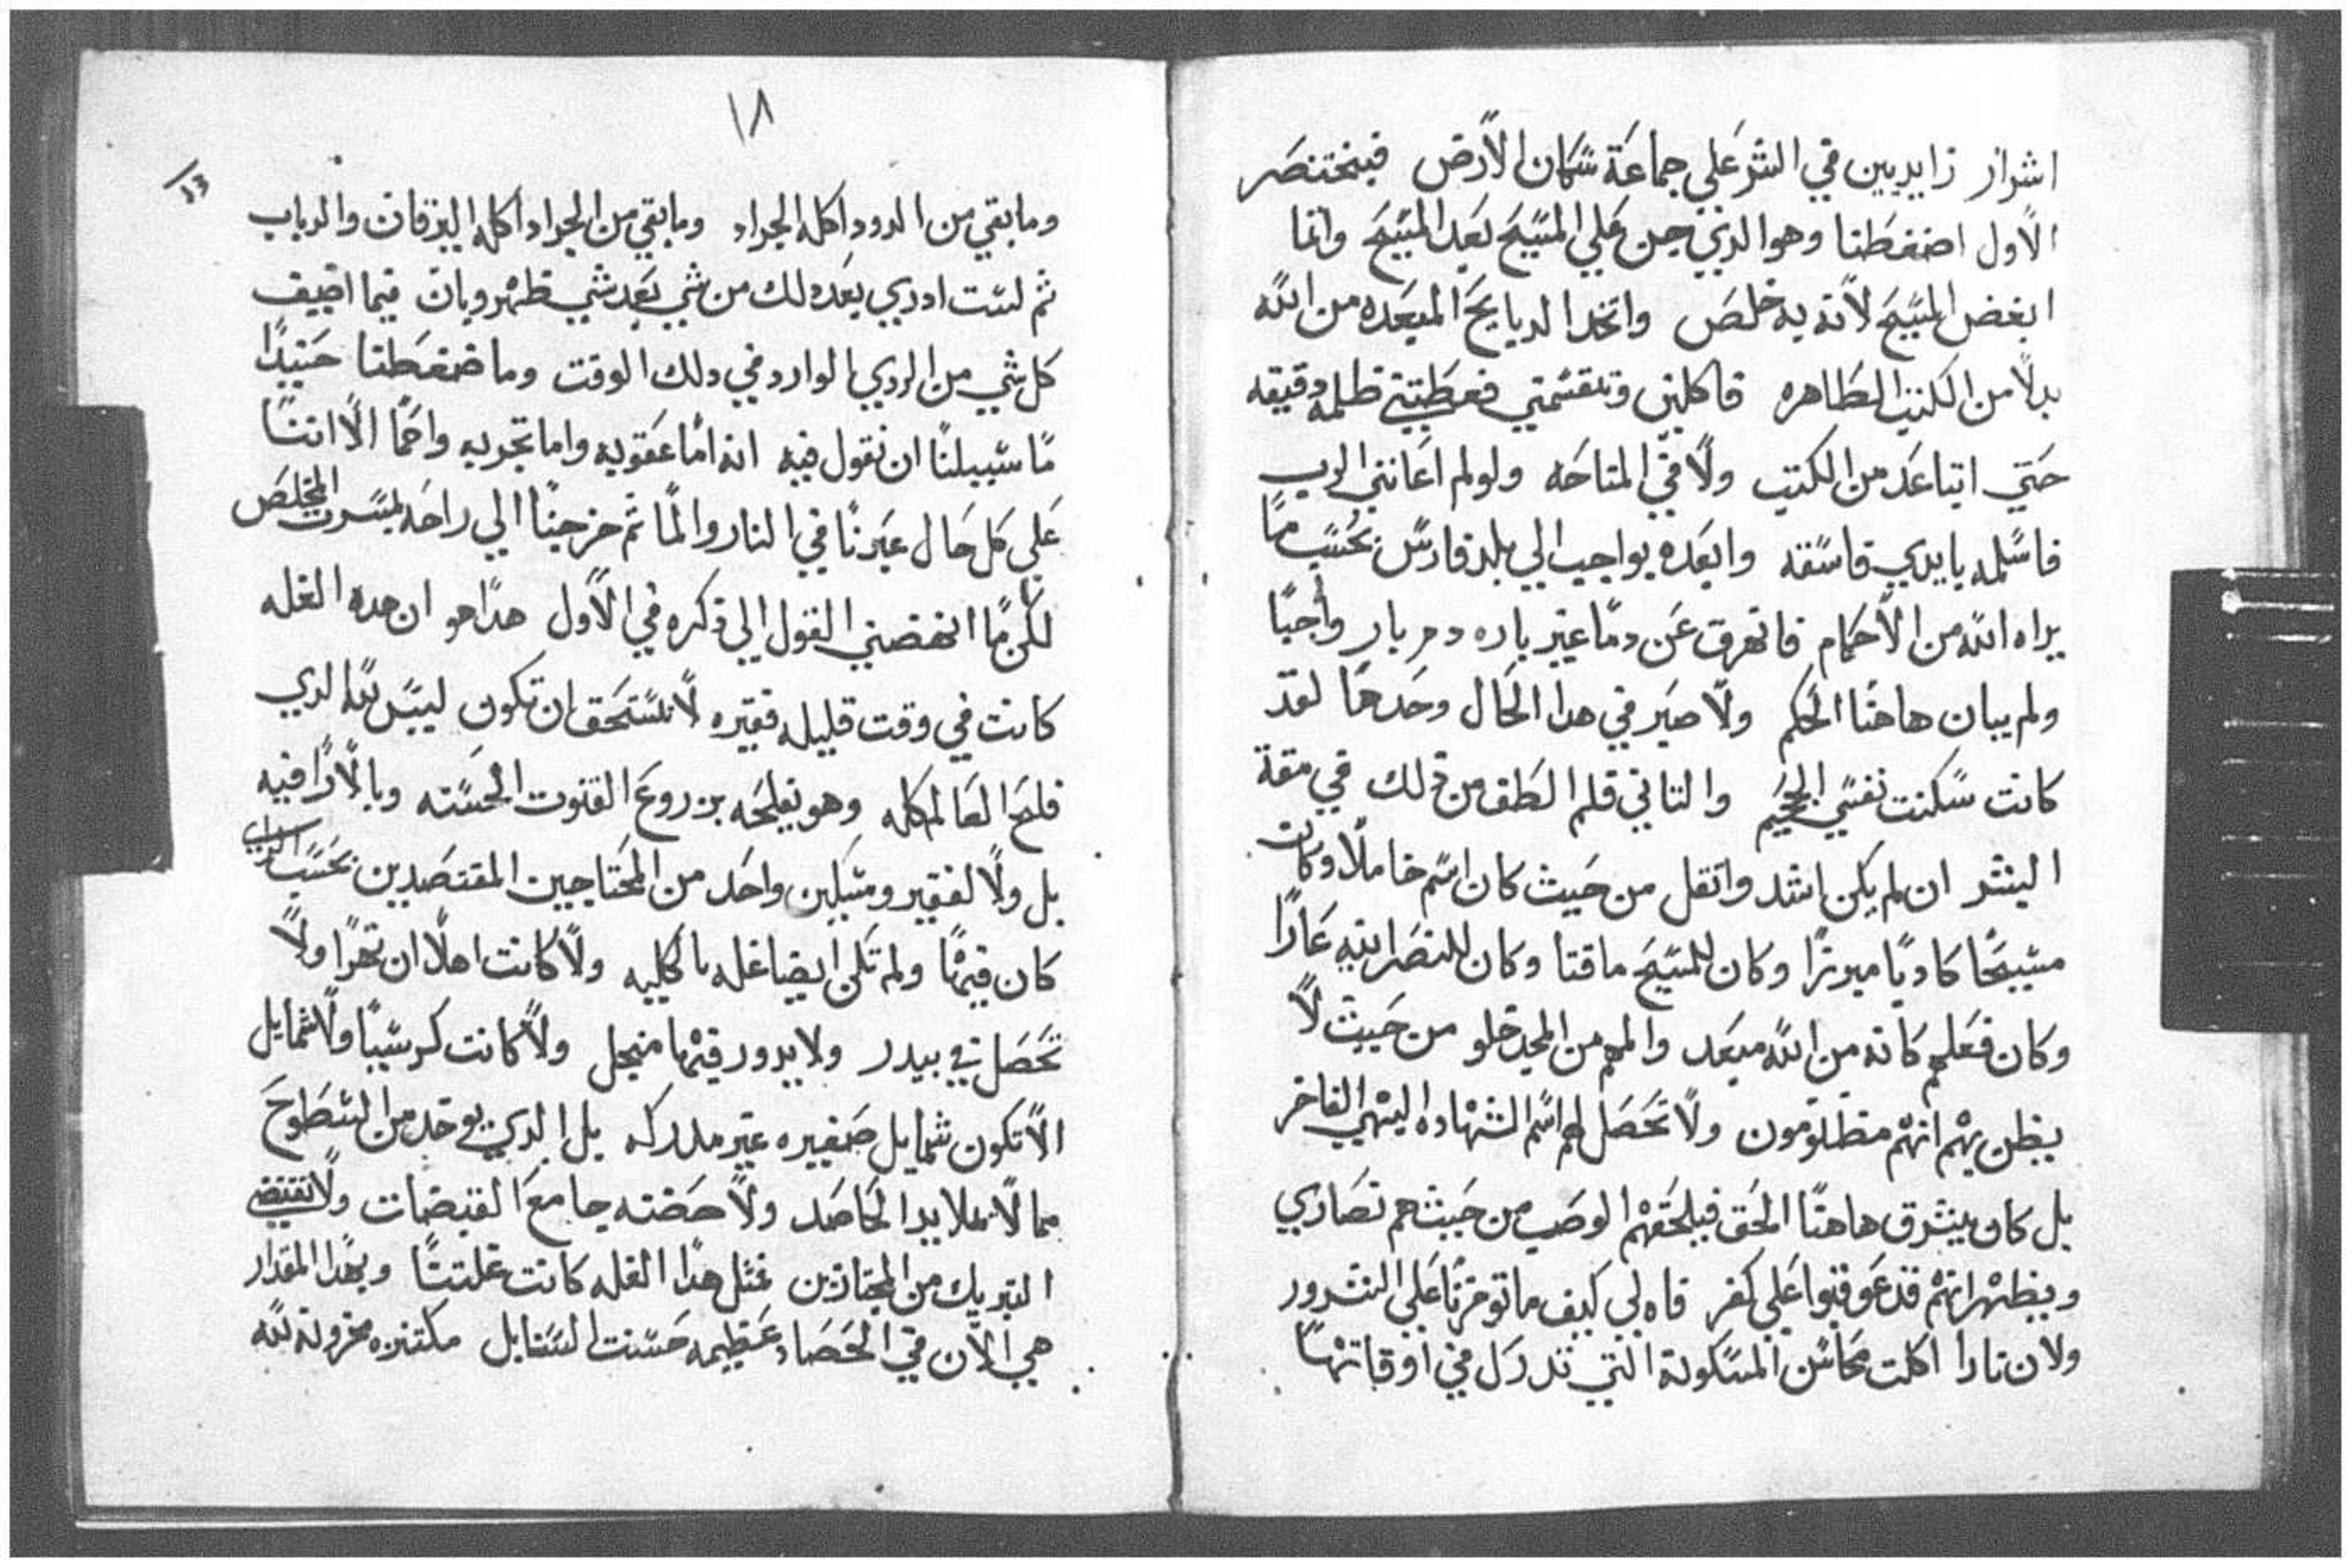 اشرار زايديين في الشر علي جماعة سكان الارض فبختنصر
الاول اضغطنا وهو الدي جن علي المسيح بعد المسيح وانما
ابغض المسيح لانه به خلص واتخد الدبايح المبعده من الله
بدلا من الكتب الطاهره فاكلني وتقسمني فغطتني ظلمه دقيقه
حتي اتباعد من الكتب ولا في المناحه ولولم اعانني الرب
فاسلمه بايدي فاسقه وابعده بواجب الي بلد فارس بحسب ما
يراه الله من الاحكام فانهرق عن دما غير باره دم بار واجبا
ولم يبان هاهنا الحكم ولا صبر في هدا الحال وحدها لقد
كانت سكنت نفسي الجحيم والتاني قلم الطف من دلك في مقة
البشر ان لم يكن اشد واتقل من حيث كان اسم خاملا وكان
مسيحا كادبا مبرزا وكان للمسيح ماقتا وكان للنصرانيه عارا
وكان فعلهم كانه من الله مبعد والهم من المجد خلو من حيث لا
يظن بهم انهم مظلومون ولا تحصل لهم اسم الشهاده البهي الفاخر
بل كان يشرق هاهنا الحق فيلحقهم الوصب من حيث هم نصاري
ويظهر انهم قد عوقبوا علي كفر فاه لي كيف ما توفرنا علي الشرور
ولان نارا اكلت محاسن المسكونة التي تدرك في اوقاتها
١٨
13
وما بقي من الدود اكله الجراد وما بقي من الجراد اكله اليرقان والدباب
تم لست ادري بعد دلك من شي بعد شي ظهر وبان فيما اضيف
كل شي من الردي الوارد في دلك الوقت وما ضغطنا حنيدا
ما سبيلنا ان نقول فيه انه اما عقوبه واما تجربه واحما الا اننا
علي كل حال عبرنا في النار والما تم خرجنا الي راحه بمسرت المخلص
لكن ما انهضني القول الي دكره في الاول هدا هو ان هده الغله
كانت في وقت قليله فقيره لا تستحق ان تكون ليس لله الدي
فلح العالم كله وهو يفلحه بزروع القنوت الحسنه وبالارا فيه
بل ولا لفقير ومسكين واحد من المحتاجين المقتصدين بحسب
كان فيها ولم تكن ايضا غله بالكليه ولا كانت اهلا ان تهرا ولا
تحصل في بيدر ولا يدور فيها منجل ولا كانت كرسيبا ولا شمايل
الا تكون شمايل صغيره غير مدركه بل الدي يوخد من السطوح
مما لا يملا يدا الحاصد ولا حضنه جامع القبضات ولا تقتضي
التبريك من المجتازين فمثل هدا الغله كانت غلتنا وبهدا المقدار
هي الان في الحصاد عظيمه حسنت السنابل مكتنزه مخزونة لله